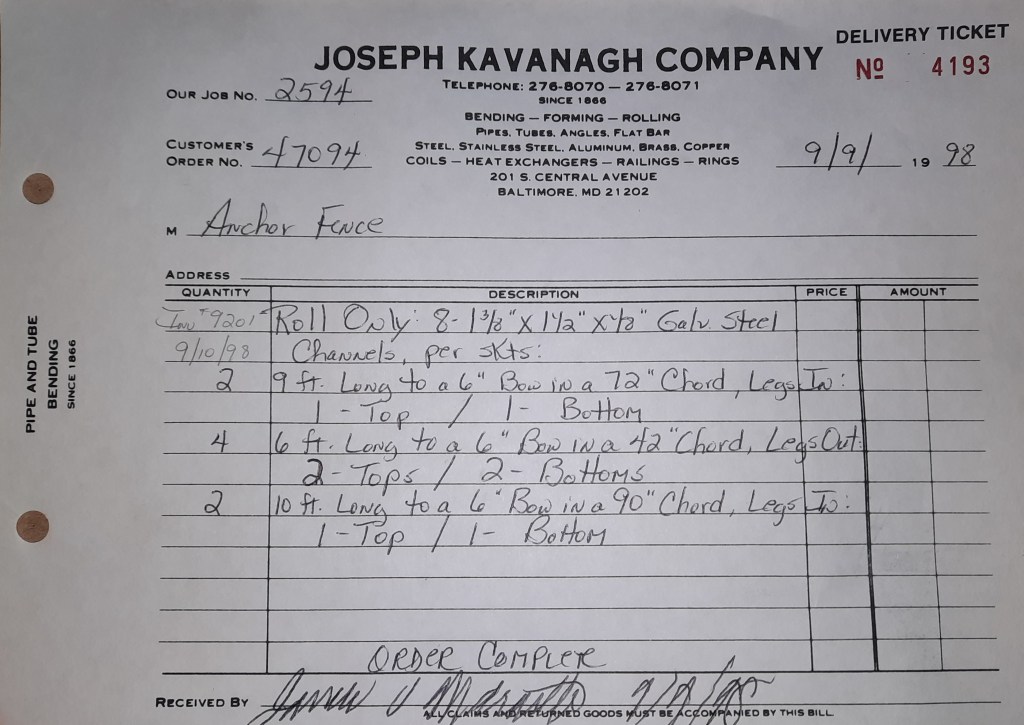 DELIVERY TICKET
JOSEPH KAVANAGH COMPANY
Nº 4193
TELEPHONE: 276-8070 — 276-8071
SINCE 1866
OUR JOB NO. 2594
BENDING — FORMING — ROLLING
PIPES, TUBES, ANGLES, FLAT BAR
STEEL, STAINLESS STEEL, ALUMINUM, BRASS, COPPER
CUSTOMER'S ORDER NO. 47094
COILS — HEAT EXCHANGERS — RAILINGS — RINGS
9/9/ 19 98
201 S. CENTRAL AVENUE
BALTIMORE, MD 21202
M Anchor Fence
ADDRESS
QUANTITY DESCRIPTION PRICE AMOUNT
Inv #9201 Roll Only: 8- 1 3/8" X 1 1/2" X 1/8" Galv. Steel
9/10/98 Channels, per skts:
2 9 ft. Long to a 6" Bow in a 72" Chord, Legs In:
1 - Top / 1 - Bottom
4 6 ft. Long to a 6" Bow in a 42" Chord, Legs Out:
2 - Tops / 2 - Bottoms
2 10 ft. Long to a 6" Bow in a 90" Chord, Legs In:
1 - Top / 1 - Bottom
ORDER COMPLETE
RECEIVED BY
ALL CLAIMS AND RETURNED GOODS MUST BE ACCOMPANIED BY THIS BILL
PIPE AND TUBE
BENDING
SINCE 1866